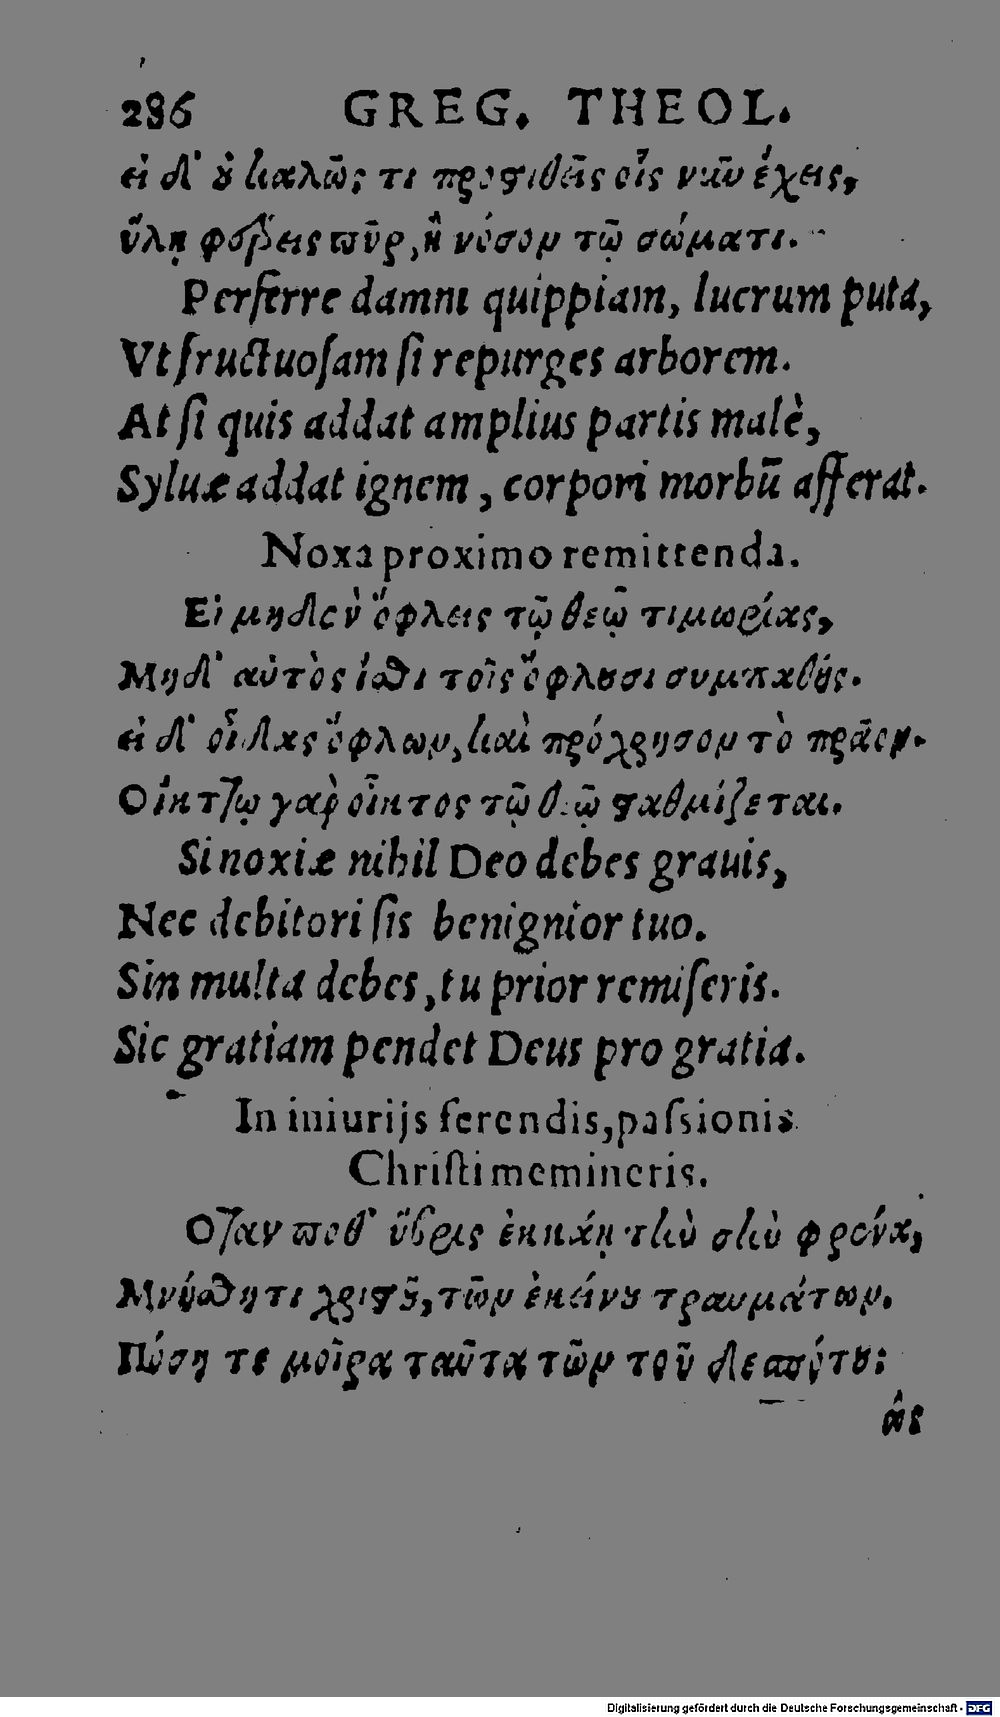 286 GREG. THEOL.
εἰ δ' ȣ̓ καλῶς τι προστιθεῖς οἷς νῦν ἔχεις,
ὕλῃ φέρεις πῦρ, ἢ νόσον τῷ σώματι.
Perferre damni quippiam, lucrum puta,
Vt fructuoſam ſi repurges arborem.
At ſi quis addat amplius partis malè,
Syluæ addat ignem, corpori morbū afferat.
Noxa proximo remittenda.
Εἰ μηδὲν ὄφλεις τῷ θεῷ τιμωρίας,
Μηδ' αὐτὸς ἴσθι τοῖς ὄφλȣσι συμπαθής.
εἰ δ' οἶδας ὄφλων, καὶ πρόχρησον τὸ πρᾶον.
Οἴκτῳ γαρ οἶκτος τῷ θεῷ σταθμίζεται.
Si noxiæ nihil Deo debes grauis,
Nec debitori ſis benignior tuo.
Sin multa debes, tu prior remiſeris.
Sic gratiam pendet Deus pro gratia.
In iniurijs ferendis, paſsionis
Chriſti memineris.
Οταν ποθ' ὕβρις ἐκκάῃ τὴν σὴν φρένα,
Μνήσθητι χριστȣ͂, τῶν ἐκείνȣ τραυμάτων.
Πόση τε μοῖρα ταῦτα τῶν τοῦ δεσπότȣ:
ὡς
Digitalisierung gefördert durch die Deutsche Forschungsgemeinschaft - DFG